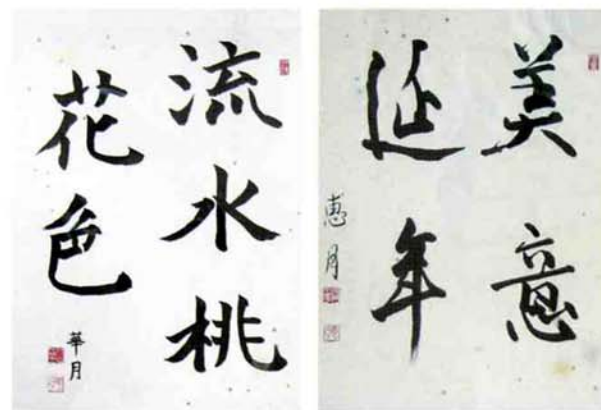 流水桃
花色
華月
美意
延年
惠月